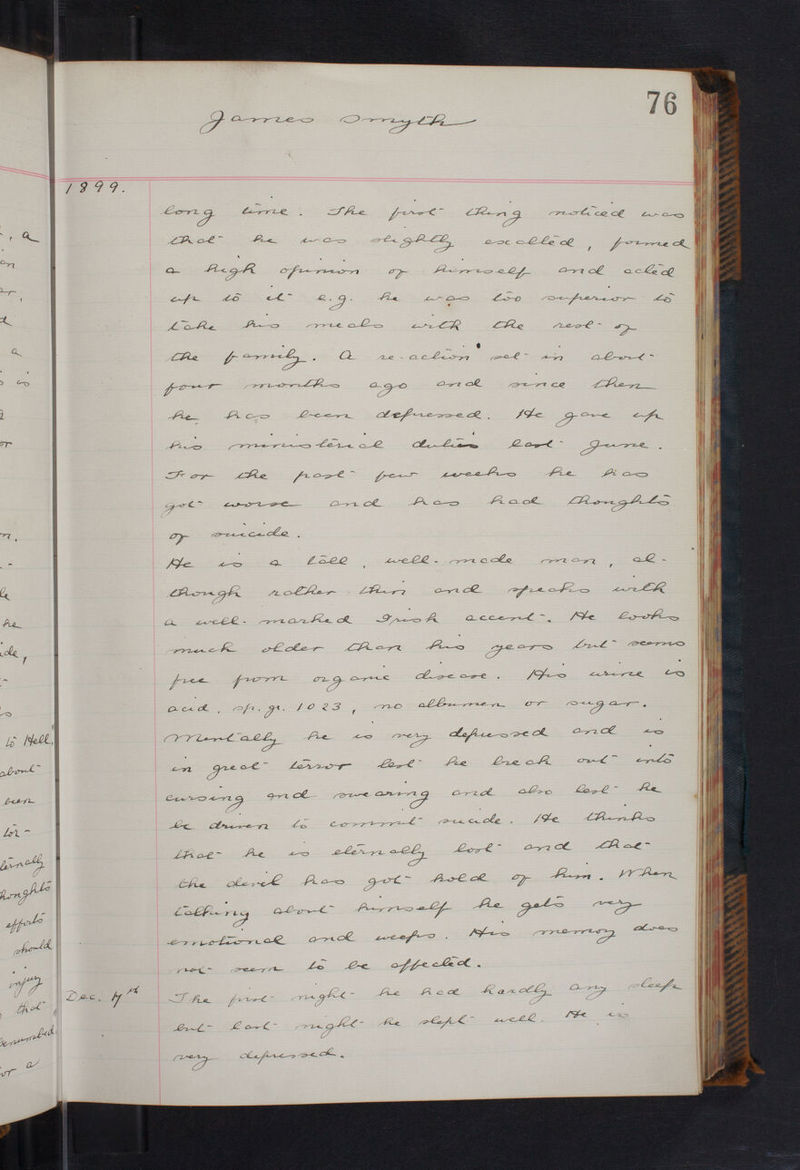 76
James Smyth
1899.
long time. The first thing noticed was
that he was slightly exalted, formed
a high opinion of himself and acted
up to it e.g. he was too superior to
take his meals with the rest of
the family. A re-action set in about
four months ago and since then
he has been depressed. He gave up
his ministerial duties last June.
For the past few weeks he has
got worse and has had thoughts
of suicide.
He is a tall, well-made man, al-
though rather thin and speaks with
a well-marked Irish accent. He looks
much older than his years but seems
free from organic disease. His urine is
acid, sp. gr. 1023, no albumen or sugar.
Mentally he is very depressed and is
in great terror lest he break out into
cursing and swearing and also lest he
be driven to commit suicide. He thinks
that he is eternally lost and that
the devil has got hold of him. When
talking about himself he gets very
emotional and weeps. His memory does
not seem to be affected.
Dec. 7th The first night he had hardly any sleep
but last night he slept well. He is
very depressed.
to Hell
about
been
ternally
thoughts
efforts
should
injury
that
benumbed
or a